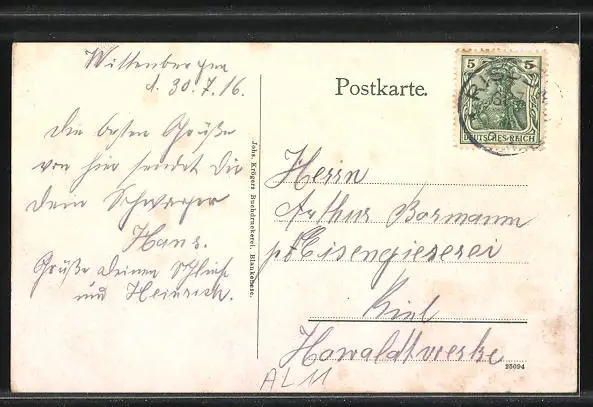 Wittenbergen
d. 30.7.16.
Die besten Grüße
von hier sendet Dir
Dein Schwager
Hans.
Grüße deinen
und Heinrich.
Johs. Krögers Buchdruckerei, Blankenese.
Postkarte.
5 5
DEUTSCHES REICH
Herrn
Arthur Bormann
Eisengieserei
Kiel
Howaldtwerke
25094
AL 11